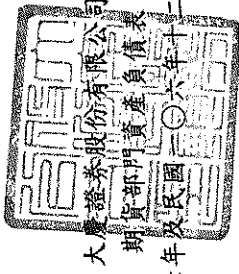 大慶證券股份有限公司
期貨部門資產負債表
年及民國一〇六年十二